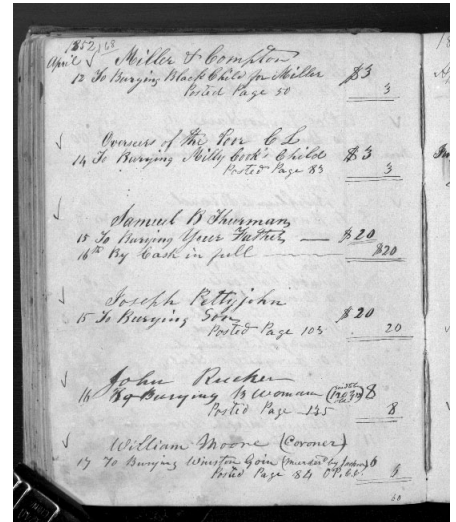 1852 168
April Miller & Compton
12 To Burying Black Child for Miller $3
Posted Page 50 3
Overseers of the Poor C L
14 To Burying Milly Cook's Child $3
Posted Page 83 3
Samuel B Thurman
15 To Burying Your Father $20
16th By Cash in full $20
Joseph Pettyjohn
15 To Burying Son $20
Posted Page 103 20
John Rucker
16 To Burying B Woman 8
Posted Page 135 8
William Moore (Coroner)
17 To Burying Winston Goin (Murder by
Posted Page 84